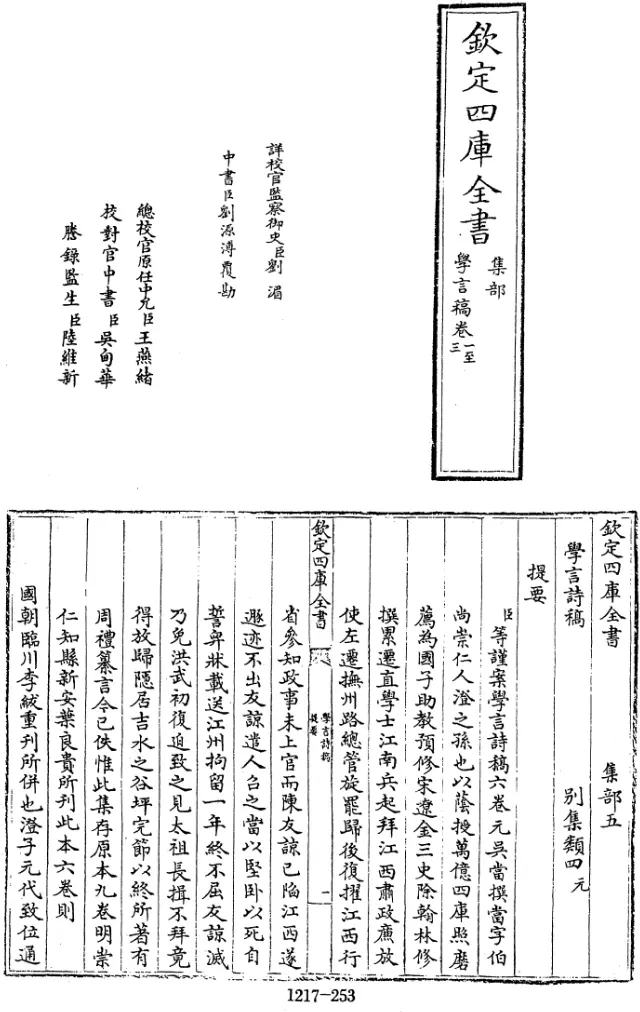 欽定四庫全書
集部
學言稿卷一至三
詳校官監察御史臣劉湄
中書臣劉源溥覆勘
總校官原任中允臣王燕緒
校對官中書臣吳甸華
謄錄監生臣陸維新
欽定四庫全書 集部五
學言詩稿 別集類四元
提要
臣等謹案學言詩稿六卷元吳當撰當字伯
尚崇仁人澄之孫也以蔭授萬億四庫照磨
薦為國子助教預修宋遼金三史除翰林修
撰累遷直學士江南兵起拜江西肅政廉放
使左遷撫州路總管旋罷歸後復擢江西行
欽定四庫全書
學言詩稿
提要
一
省參知政事未上官而陳友諒已陷江西遂
遯迹不出友諒遣人召之當以堅卧以死自
誓舁牀載送江州拘留一年終不屈友諒滅
乃免洪武初復迫致之見太祖長揖不拜竟
得放歸隱居吉水之谷坪完節以終所著有
周禮纂言今已佚惟此集存原本九卷明崇
仁知縣新安葉良貴所刊此本六卷則
國朝臨川李紱重刊所併也澄子元代致位通
1217-253